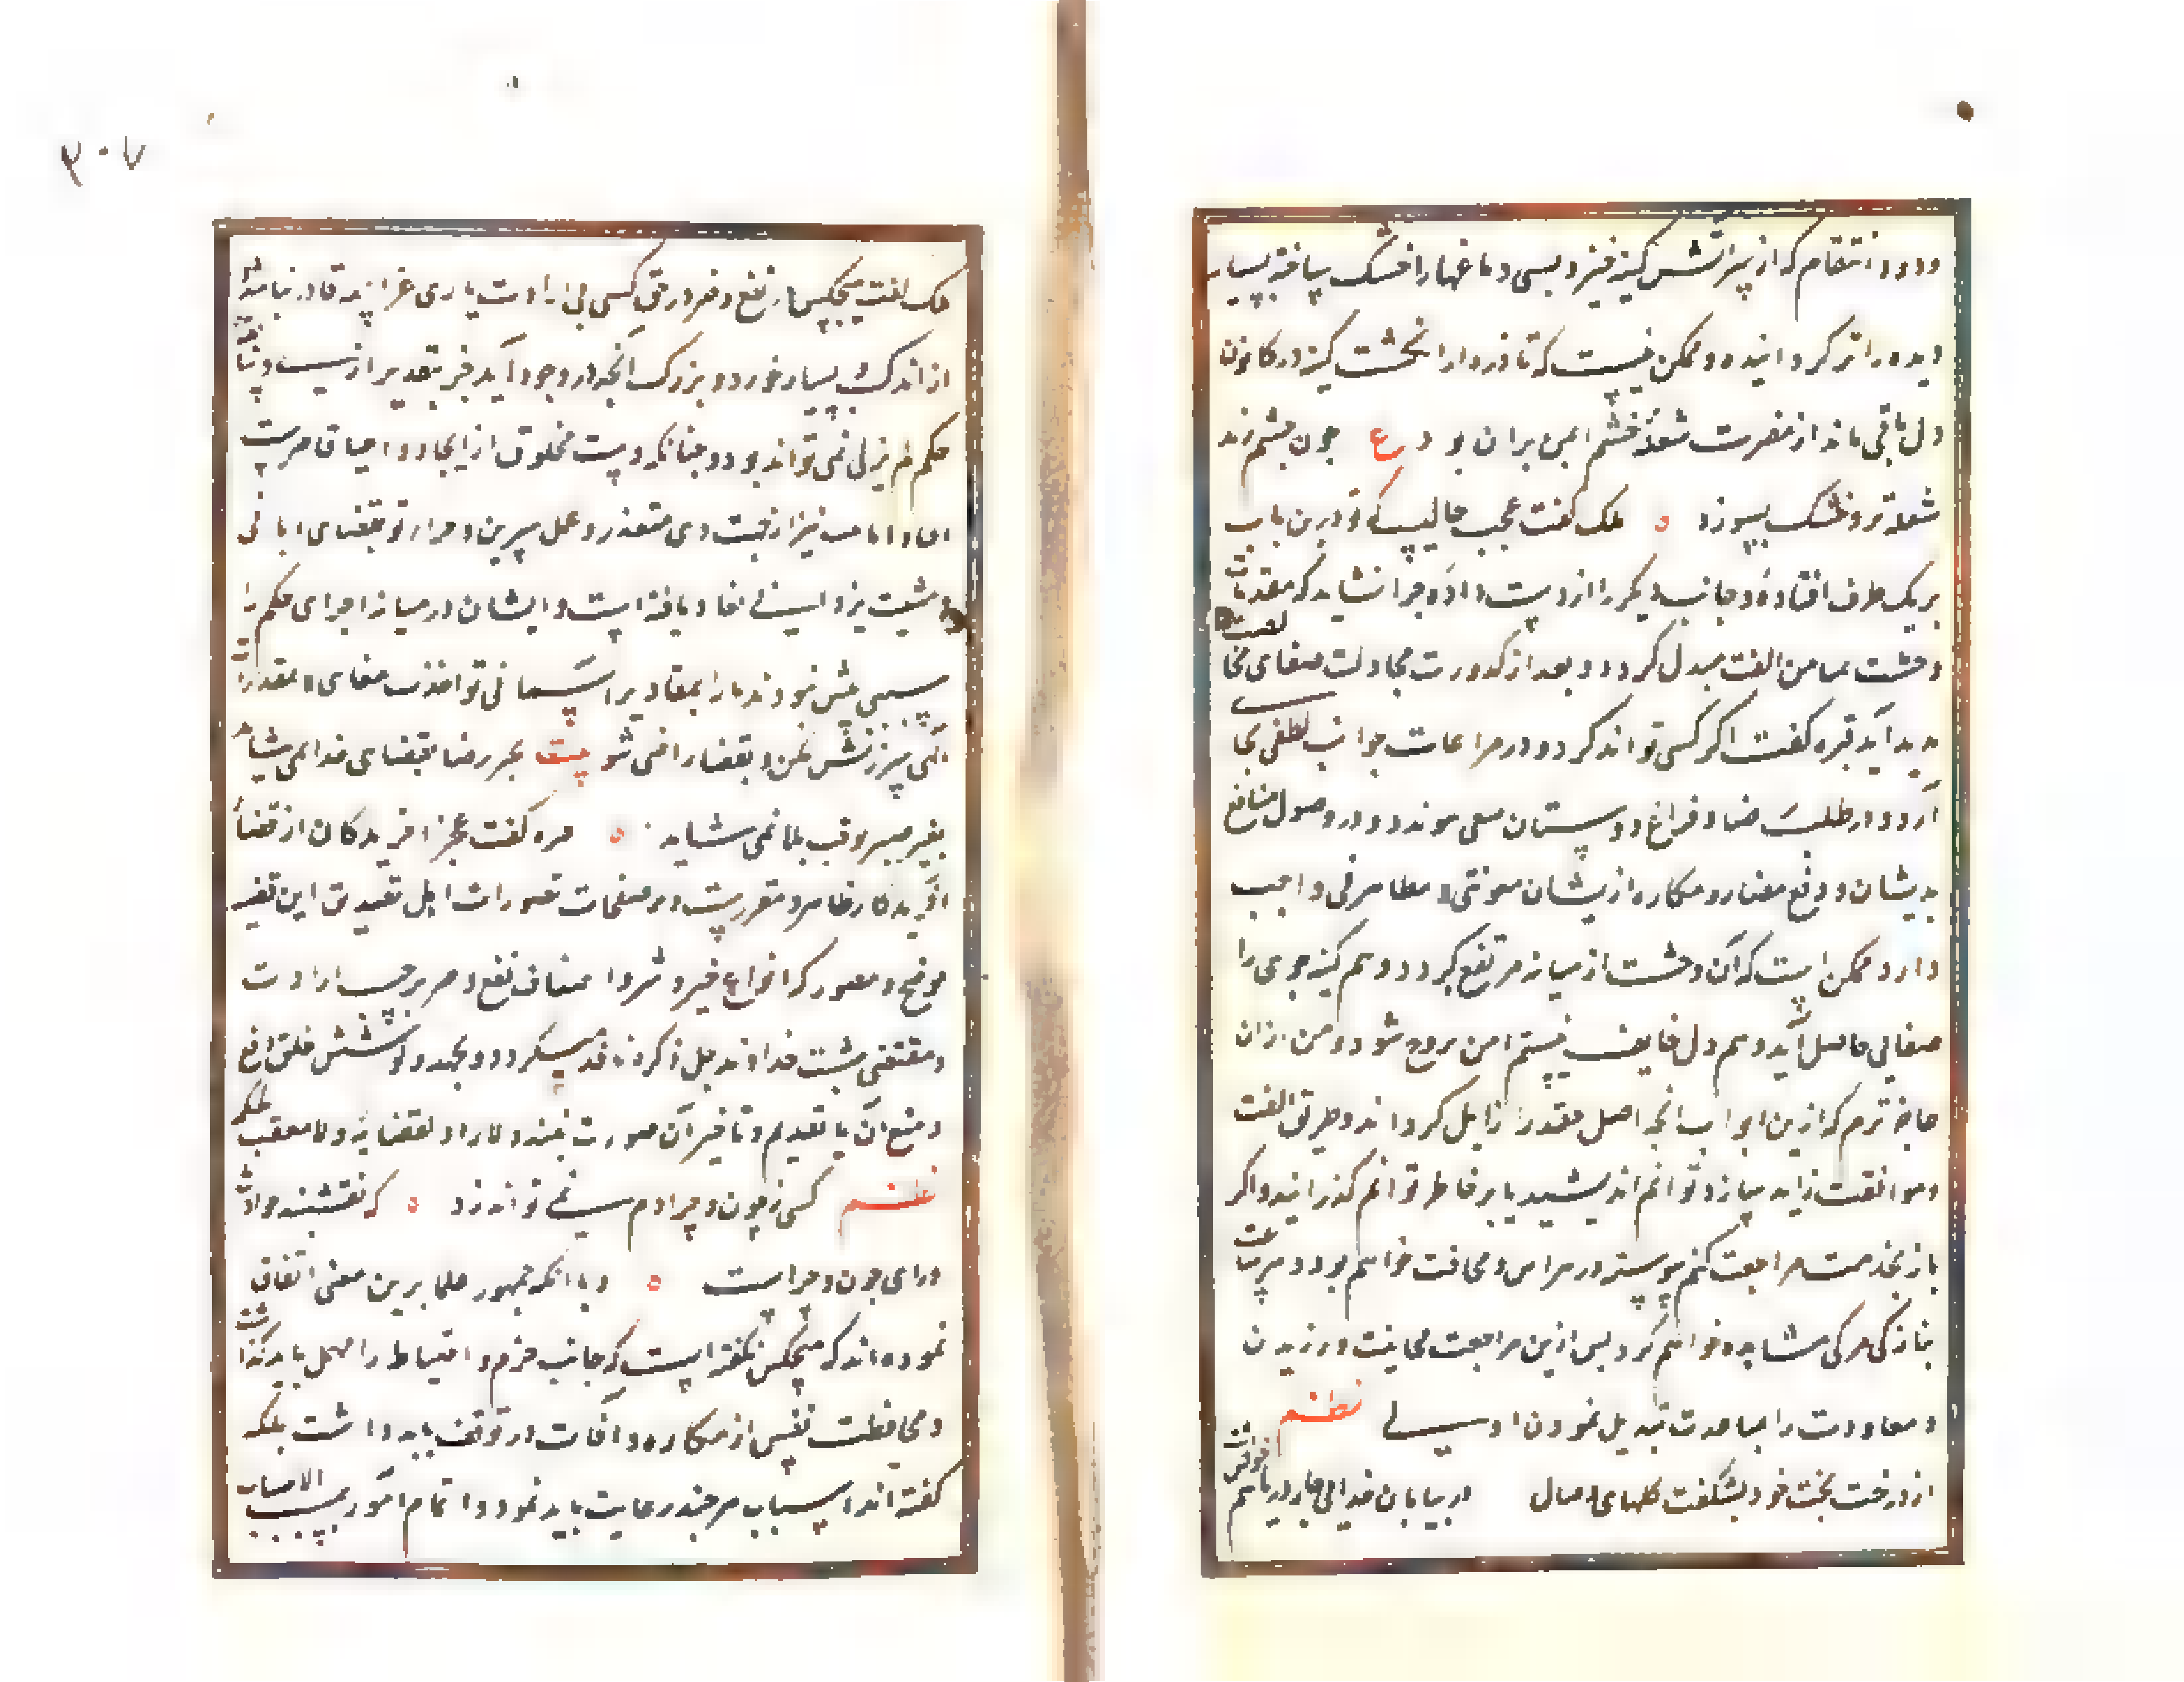 ودود انتقام که از تیز آتش کینه خیزد بسی دماغها را خشک ساخته بسیار
دیده را تر گردانیده و ممکن نیست که تا ذره از انگشت کینه در کانون
دل باقی ماند از مضرت شعلهٔ خشم ایمن بران بود ع چون چشم زند
شعله تر و خشک بسوزد ملک گفت عجب حالیست که تو درین باب
بر یک طرف افتادهٔ و جانب دیگر را از دست دادهٔ چرا نشاید که مقدمات
وحشت بمیامن الفت مبدل گردد و بعد از کدورت مجادلت صفای مخالصت
پدید آید قبره گفت اگر کسی تواند کرد و در مراعات جوانب لطفی بجا
آرد و در طلب رضا و فراغ دوستان سعی پیوندد و در وصول منافع
بدیشان و دفع مضار و مکاره ازیشان معونتی و مظاهرتی واجب
دارد ممکن است که آن وحشت از میانه مرتفع گردد و هم کینه جوی را
صفایی حاصل آید و هم دل خایف ستم امن مروح شود و من ازان
عاجزترم که ازین ابواب آنچه اصل حقد را زایل گرداند و طریق الفت
و موافقت زاید سازد توانم اندیشید یا بر خاطر توانم گذرانید و اگر
باز بخدمت مراجعت کنم پیوسته در هراس و مخافت خواهم بود و هر ساعت
بتازگی مرگی مشاهده خواهم کرد پس ازین مراجعت مجانبت ورزیدن
و معاودت را بمباعدت تبدیل نمودن اولی نظم
از درخت بخت خود بشکفت گلهای وصال در بیابان جدایی خار در پا هم خوشست
۳۰۷
ملک گفت هیچکس از نفع و ضر در حق کسی بی ارادت باری عز اسمه قادر نباشد
از اندک و بسیار خورد و بزرگ آنچه در وجود آید جز بتقدیر ازلیست و
حکم لم یزلی نمی تواند بود و چنانکه دست مخلوق از ایجاد و احیا قاصرست
افنا و اماتت نیز از جهت وی متعذر و عمل پسر من و جزاء تو بقضای ربانی
و مشیت یزدانی نفاد یافته است و ایشان در میانه اجرای حکم را
سببی بیش نبودند ما را بمقادیر آسمانی مواخذت منمای و بمقدرات
الهی سرزنش مکن و بقضا راضی شو بیت بجز رضا بقضای خدا نمی شاید
بغیر صبر بوقت بلا نمی شاید قبره گفت عجز آفریدگان از قضای
آفریدگار ظاهر و مقررست و بر صفحات تصورات اهل تصدیق این قضیه
موضح و مصور که انواع خیر و شر و اصناف نفع و ضر بر حسب ارادت
و مقتضی مشیت خداوند جل ذکره نافذ میگردد و بجهد و کوشش خلق دفع
و منع آن یا تقدیم و تاخیر آن صورت نبندد لا راد لقضائه و لا معقب لحکمه
نظم کسی ز چون و چرا دم نمی تواند زد که نقشبند حوادث
ورای چون و چراست و با آنکه جمهور علما برین معنی اتفاق
نموده اند که هیچکس نگفته است که جانب حزم و احتیاط را مهمل باید گذاشت
و محافظت نفس از مکاره و آفات در توقف باید داشت بلکه
گفته اند اسباب هر چند رعایت باید نمود و اتمام امور بمسبب الاسباب